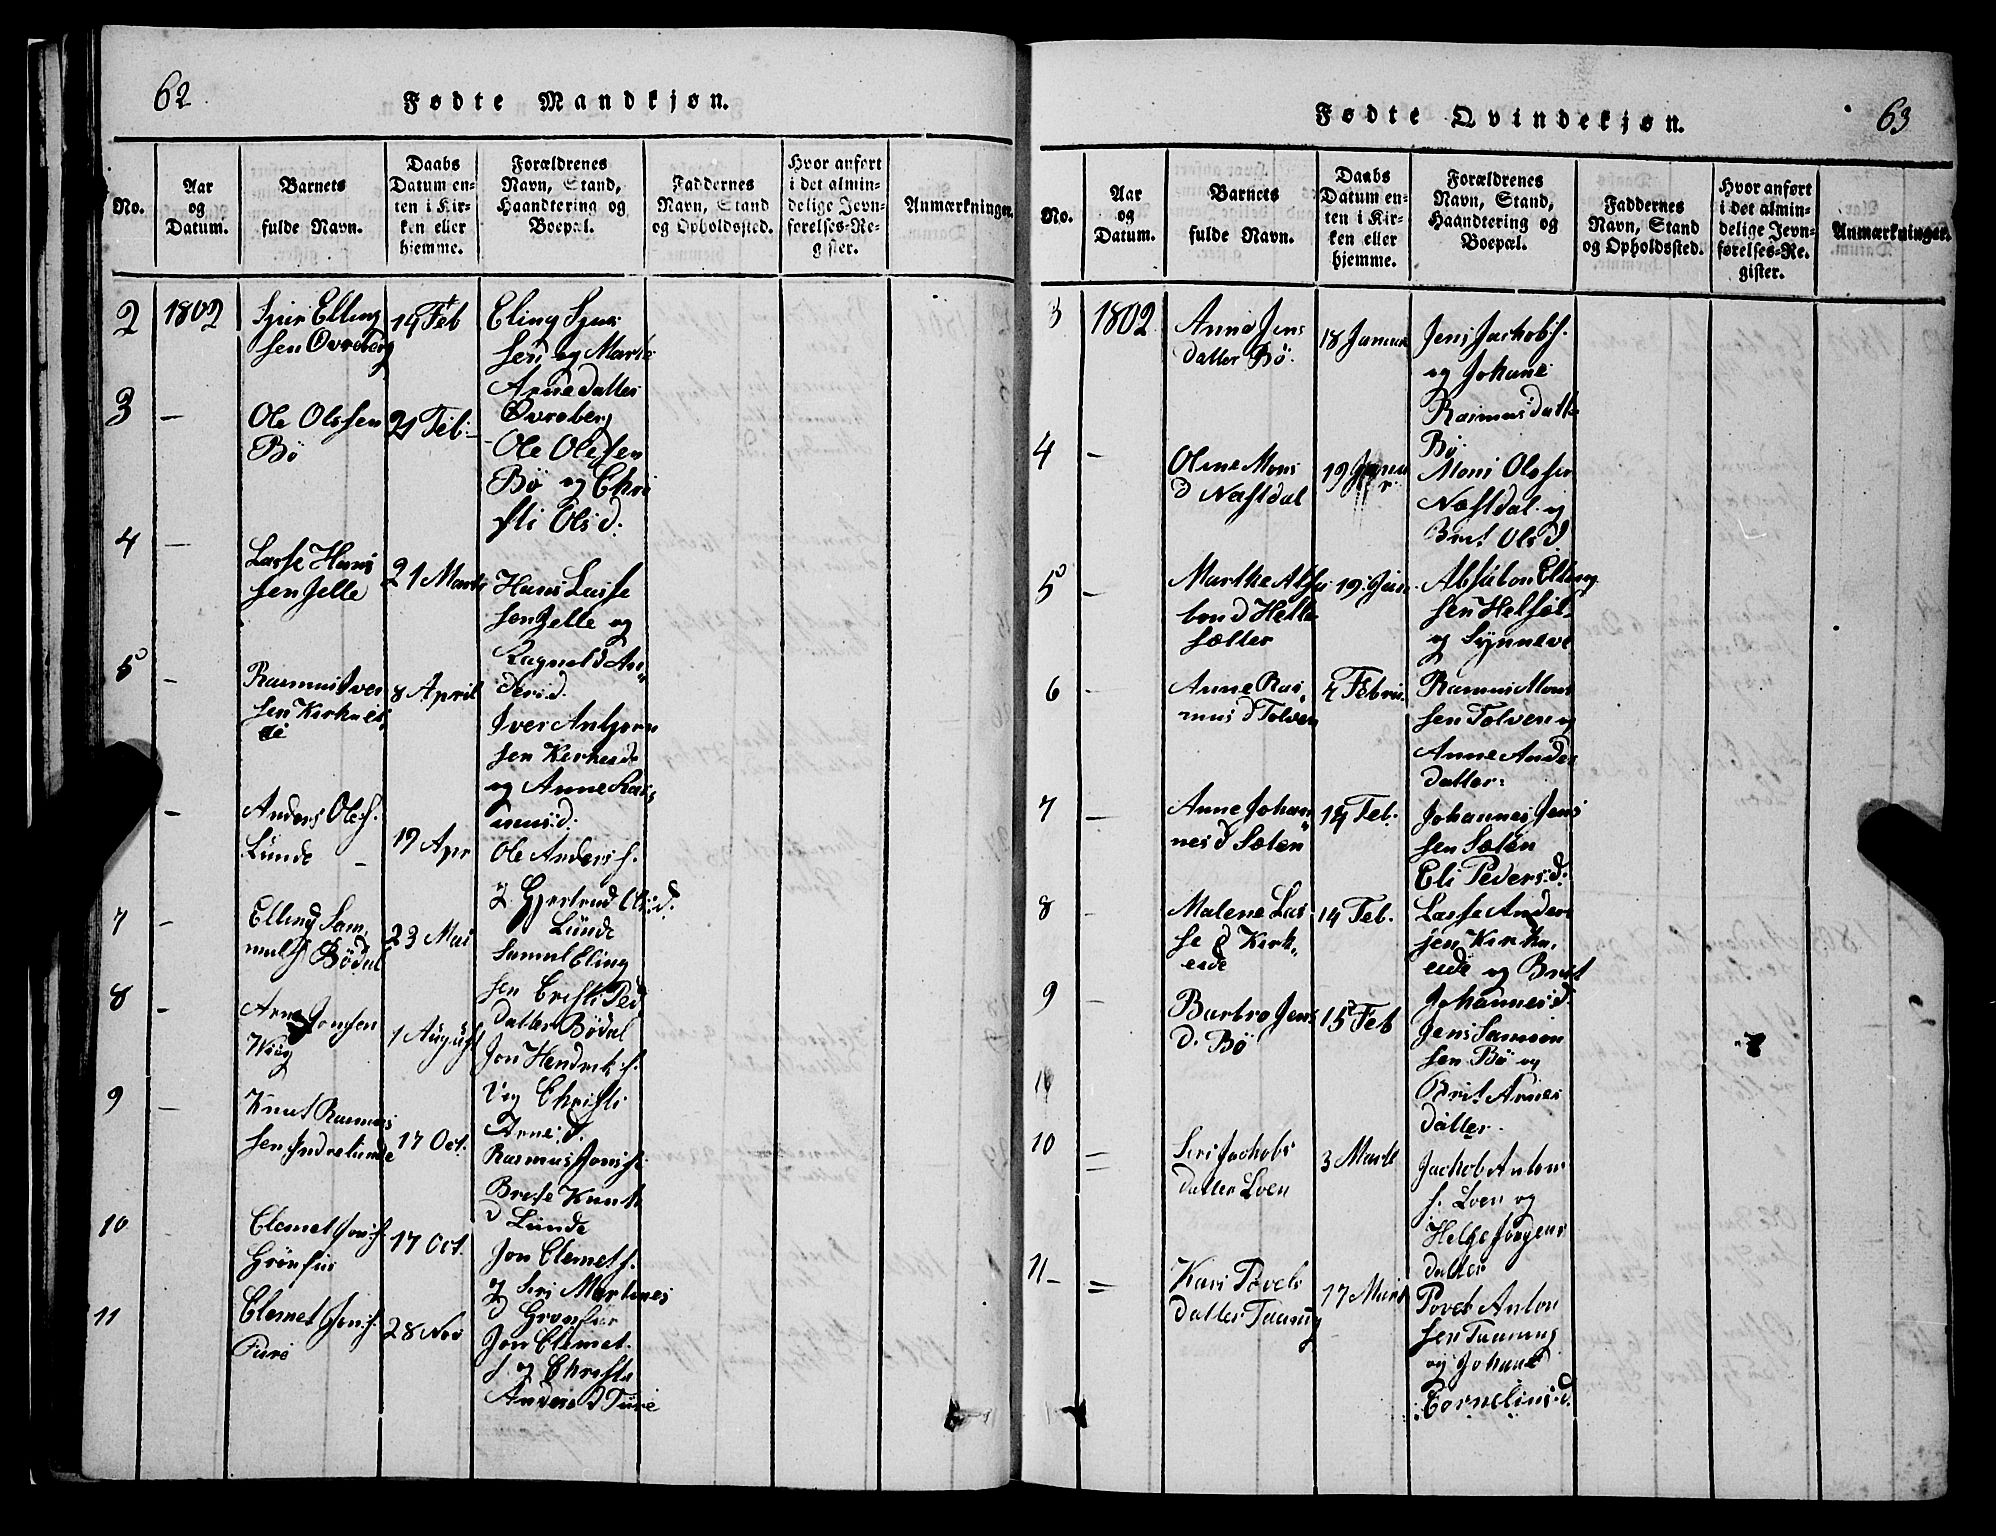 62.
Fødte Mandkjøn.
No.
Aar
og
Datum.
Barnets
fulde Navn.
Daabs
Datum en-
ten i Kir-
ken eller
hjemme.
Forældrenes
Navn, Stand,
Haandtering og
Boepæl.
Faddernes
Navn, Stand
og Opholdssted.
Hvor anført
i det almin-
delige Jevn-
førelses-Re-
gister.
Anmærkninger.
2
1802
Sjur Elling
sen Øvreberg
14 Feb
Eling Sjur
sen og Marte
Arnedatter
Øvreberg
3
—
Ole Olssen
Bø
21 Feb:
Ole Olesen
Bø og Chri
sti Ols d.
4
—
Lasse Hans
sen Jelle
21 Marti
Hans Lasse
sen Jelle og
Ragneld An
ders.d.
5
—
Rasmus Iver
sen Kirkeei
de
8 April
Iver Anbjørn
sen Kirkeeide
og Anne Ras
mus:d:
—
Anders Oles.
Lunde —
19 Apr
Ole Anders s.
og Gjertrud Ols:d.
Lunde
7
—
Elling Sam
muels Bødal
23 Mai
Samul Eling
sen Cristi Ped
datter Bødal
8
—
Arne Jonsen
Wiig
1 August
Jon Hendrik s.
Viig Christi
Arne:d.
9
—
Knut Rasmus
sen Indrelunde
17 Oct.
Rasmus Jons s:
Brite Knut
d Lunde
10
Clemet Jon s.
Grønfur
17 Oct.
Jon Clemet s.
og Siri Martines
d Gronfur
11
Clemet Jon s.
28 Nov
Jon Clemet
s. og Christi
Anders d
63
Fødte Qvindekjøn.
No.
Aar
og
Datum.
Barnets
fulde Navn.
Daabs
Datum en-
ten i Kir-
ken eller
hjemme.
Forældrenes
Navn, Stand,
Haandtering og
Boepæl.
Faddernes
Navn, Stand
og Opholdssted.
Hvor anført
i det almin-
delige Jevn-
førelses-Re-
gister.
Anmærkninger.
3
1802
Anna Jens
datter Bø.
18 Januar
Jens Jachob s.
og Johane
Rasmusdatte
Bø.
4
—
Oline Mons
d Nesdal
19 Januar
Mons Olssen
Nesdal og
Brit Ols d
5
—
Marthe Absa
lon d Helle
sætter
19. Jan.
Absalon Elling
sen Helset
og Synneve
6
—
Anne Ras
mus d Tolven
7 Febru.
Rasmus Mons
sen Tolven og
Anne Anders
datter:
7
—
Anne Johan
nes d Sæten
14 Feb.
Johannes Jens
sen Sæten
Eli Peders:d:
8
—
Malene Las
se d Kirk
eide
14 Feb.
Lasse Anders
sen Kirke
eide og Brit
Johannes:d.
9
—
Barbro Jens
d. Bø
15 Feb
Jens Samson
sen Bø og
Brit Arnes
datter.
10
=
Siri Jachobs
datter Loen
3 Marti
Jachob Anton
s. Loen og
Helge Jørgens
datter
11—
=
Kari Povels
datter Taaning
17 Marti
Povel Anton
sen Taaning
og Johane
Cornelius:d.